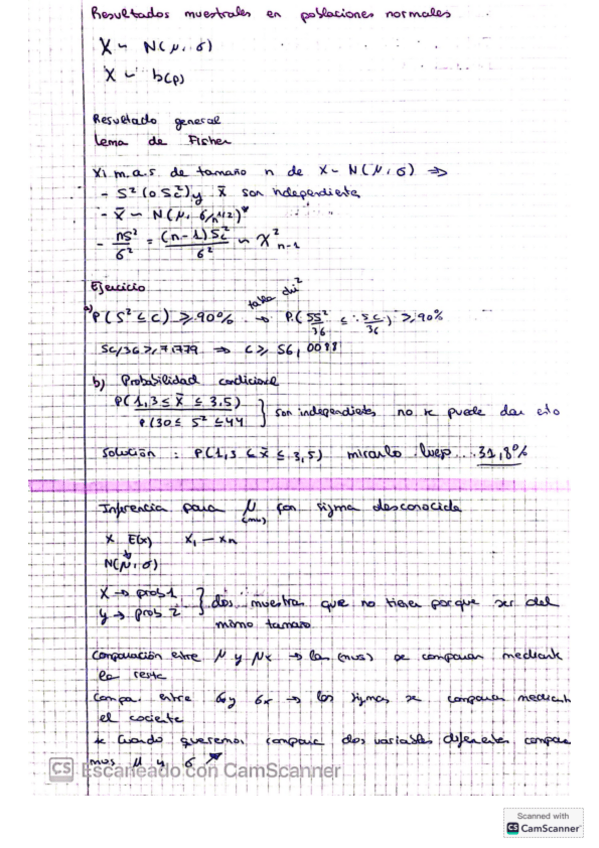 Resultados muestrales en poblaciones normales
X ~ N(μ, σ)
X ~ b(p)
Resultado general
Lema de Fisher
Xi m.a.s. de tamaño n de X ~ N(μ, σ) ⇒
- S² (o Sc²) y x̄ son independientes
- x̄ ~ N(μ, σ/n^1/2)
- nS²/σ² = (n-1)Sc²/σ² ~ χ²n-1
Ejercicio
a) P(S² ≤ c) ≥ 90% → tabla chi² P(5S²/36 ≤ 5c/36) ≥ 90%
5c/36 ≥ 7,779 ⇒ c ≥ 56,0088
b) Probabilidad condicional
P(1,3 ≤ x̄ ≤ 3,5)
P(30 ≤ S² ≤ 44 } son independientes no se puede dar esto
Solución: P(1,3 ≤ x̄ ≤ 3,5) mirarlo luego... 31,8%
Inferencia para μ con sigma desconocida
(mu)
X E(x) x₁ — xn
N(μ, σ)
X → prob 1
y → prob 2 } dos muestras que no tienen porque ser del
mismo tamaño
Comparación entre μ y μx → las (mus) se comparan mediante
la resta
Compa. entre σy σx → los sigmas se comparan mediant
el cociente
* Cuando queremos comparar dos variables diferentes compara
mos μ y σ
CS Escaneado con CamScanner
Scanned with
CS CamScanner